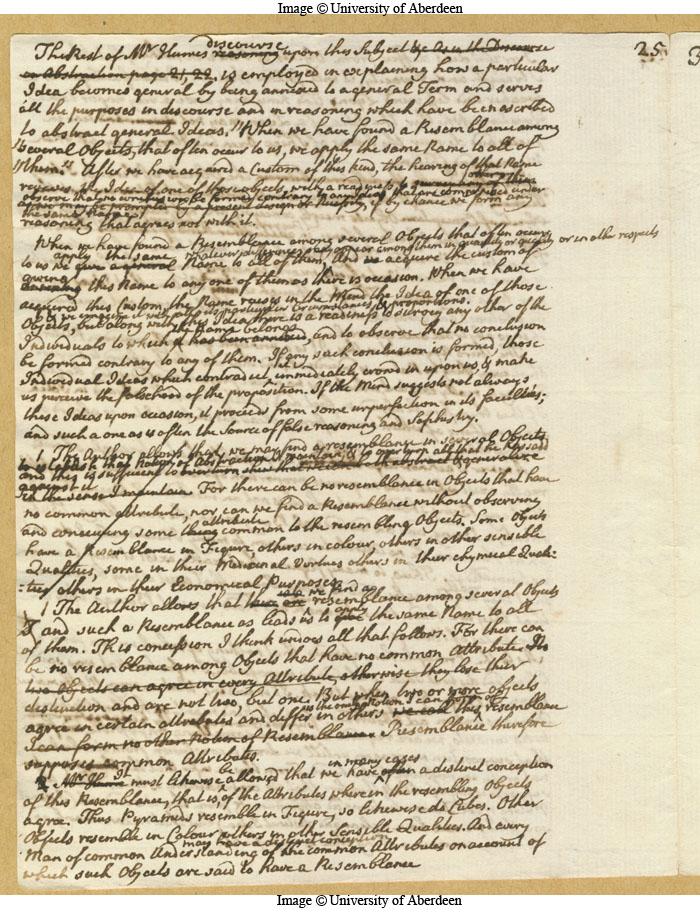 Image © University of Aberdeen
25
3
discourse
The Rest of Mr Humes reasoning upon this Subject
on Abstraction page 21 22, is employed in explaining how a particular
Idea becomes general by being annexed to a general Term and serves
all the purposes in discourse and in reasoning which have been ascribed
to abstract general Ideas. "When we have found a Resemblance among
"several Objects, that often occur to us, we apply the same Name to all of
"them." After we have acquired a Custom of this kind, the hearing of that Name
revives the Idea of one of these objects, with a readiness to
observe that no
the same Name
if by chance we form any
reasoning that agrees not with it.
When we have found a Resemblance among several Objects that often occur
apply the same whatever differences may appear among them in quantity or quality or in other respects
to us we give a general Name to all of them, And we acquire the custom of
applying this Name to any one of them as there is occasion. When we have
acquired this Custom, the Name raises in the Mind the Idea of one of those
& we conceive it with all its particular Circumstances & proportions.
Objects, but along with this Idea there is a readiness to survey any other of the
the Name belongs
Individuals to which it has been annexed, and to observe that no conclusion
be formed contrary to any of them. If any such conclusion is formed, those
Individual Ideas which contradict it, immediately crowd in upon us, & make
us perceive the falsehood of the proposition. If the Mind suggests not always
these Ideas upon occasion, it proceeds from some imperfection in its faculties;
and such a one as is often the Source of false reasoning and Sophistry.
1 The Author allows that we may find a resemblance in several Objects
and this is sufficient to
against it
in the sense I maintain. For there can be no resemblance in Objects that have
no common attribute, nor can we find a Resemblance without observing
attribute
and conceiving some thing common to the resembling Objects. Some Objects
have a Resemblance in Figure, others in colour, others in other sensible
Qualities, some in their Medicinal Virtues others in their chymical Quali-
-ties others in their Economical Purposes.
we find a
1 The Author allows that resemblance among several Objects
apply
and such a Resemblance as leads us to give the same Name to all
of them. This concession I think undoes all that follows. For there can
be no resemblance among Objects that have no common Attribute. No
two Objects can agree in every Attribute, otherwise they lose their
distinction and are not two, but one. But when two or more objects
agree in certain attributes and differ in others we call this resemblance
I can form no other Notion of Resemblance. Resemblance therefore
supposes common Attributes.
It be in many cases
2 Mr Hume must likewise allowed that we have often a distinct conception
of this Resemblance, that is, of the Attributes wherein the resembling Objects
agree. Thus Pyramids resemble in Figure, so likewise do Cubes. Other
Objects resemble in Colour others in other Sensible Qualities. And every
may have a distinct conception
Man of common Understanding of the common Attributes on account of
which such Objects are said to have a Resemblance
Image © University of Aberdeen